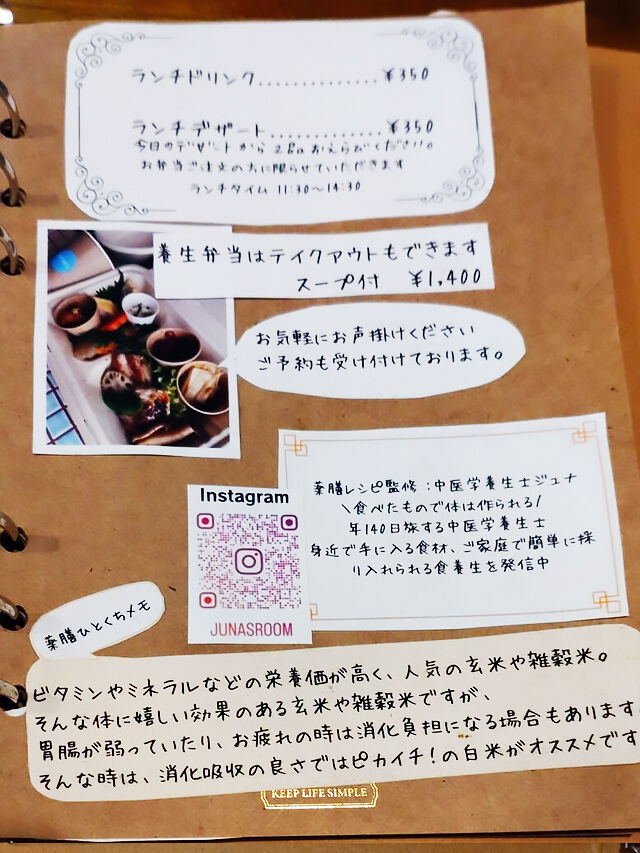 ランチドリンク..............¥350
ランチデザート.............¥350
今日のデザートから2品お選びください。
お弁当ご注文の方に限らせていただきます
ランチタイム 11:30〜14:30
養生弁当はテイクアウトもできます
スープ付 ¥1,400
お気軽にお声掛けください
ご予約も受け付けております。
薬膳レシピ監修:中医学養生士ジュナ
\食べたもので体は作られる/
年140日旅する中医学養生士
身近で手に入る食材、ご家庭で簡単に採
り入れられる食養生を発信中
Instagram
JUNASROOM
薬膳ひとくちメモ
ビタミンやミネラルなどの栄養価が高く、人気の玄米や雑穀米。
そんな体に嬉しい効果のある玄米や雑穀米ですが、
胃腸が弱っていたり、お疲れの時は消化負担になる場合もあります
そんな時は、消化吸収の良さではピカイチ!の白米がオススメです
KEEP LIFE SIMPLE